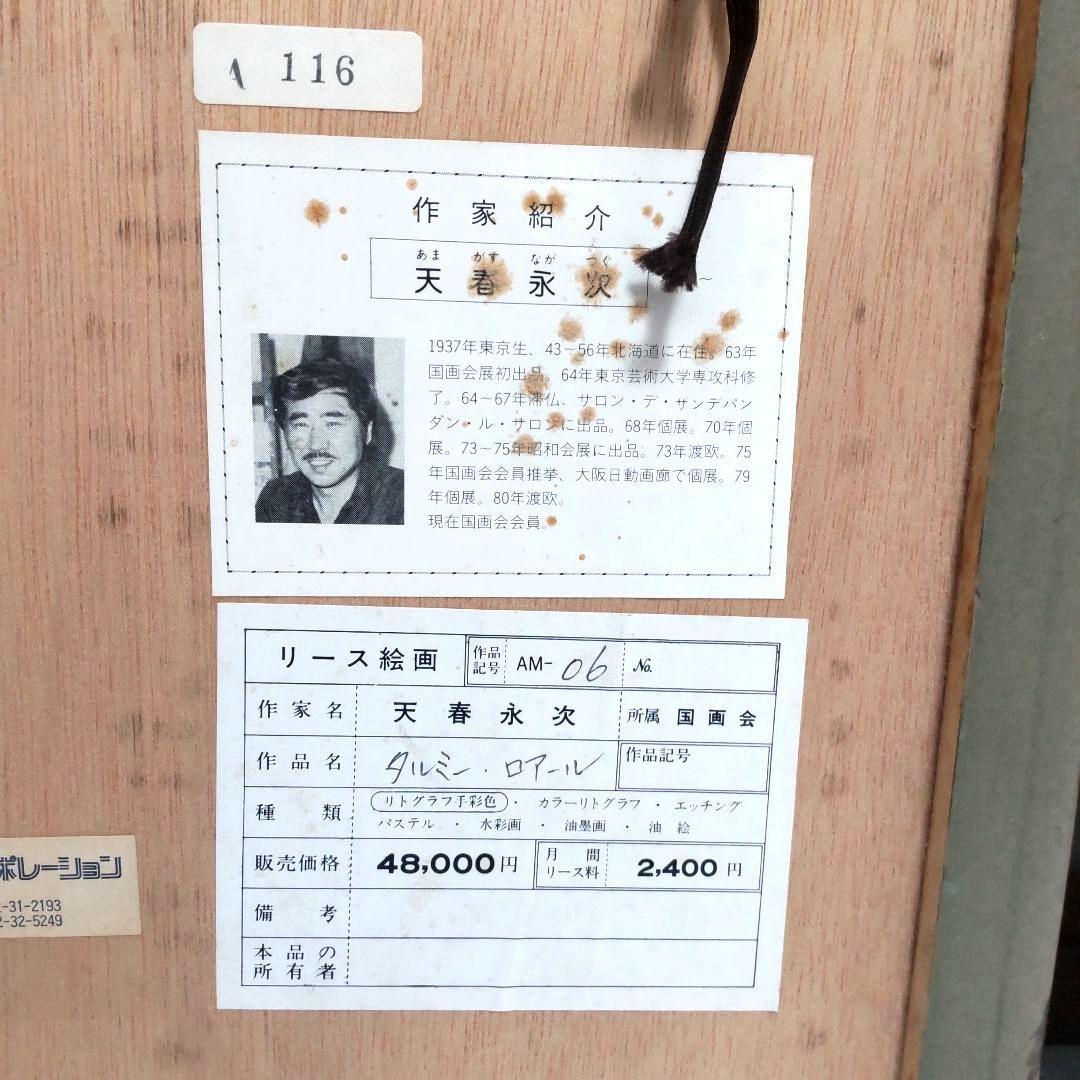 116
作家紹介
あま がす なが つぐ
天春永次
1937年東京生、43〜56年北海道に在住。63年
国画会展初出品。64年東京芸術大学専攻科修
了。64〜67年滞仏、サロン・デ・サンデパン
ダン・ル・サロンに出品。68年個展。70年個
展。73〜75年昭和会展に出品。73年渡欧。75
年国画会会員推挙、大阪日動画廊で個展。79
年個展。80年渡欧。
現在国画会会員。
リース絵画 作品記号 AM-06 No.
作家名 天春永次 所属 国画会
作品名 タルミー・ロアール 作品記号
種類 リトグラフ手彩色・カラーリトグラフ・エッチング
パステル・水彩画・油墨画・油絵
販売価格 48,000円 月間リース料 2,400円
備考
本品の
所有者
ポレーション
-31-2193
2-32-5249